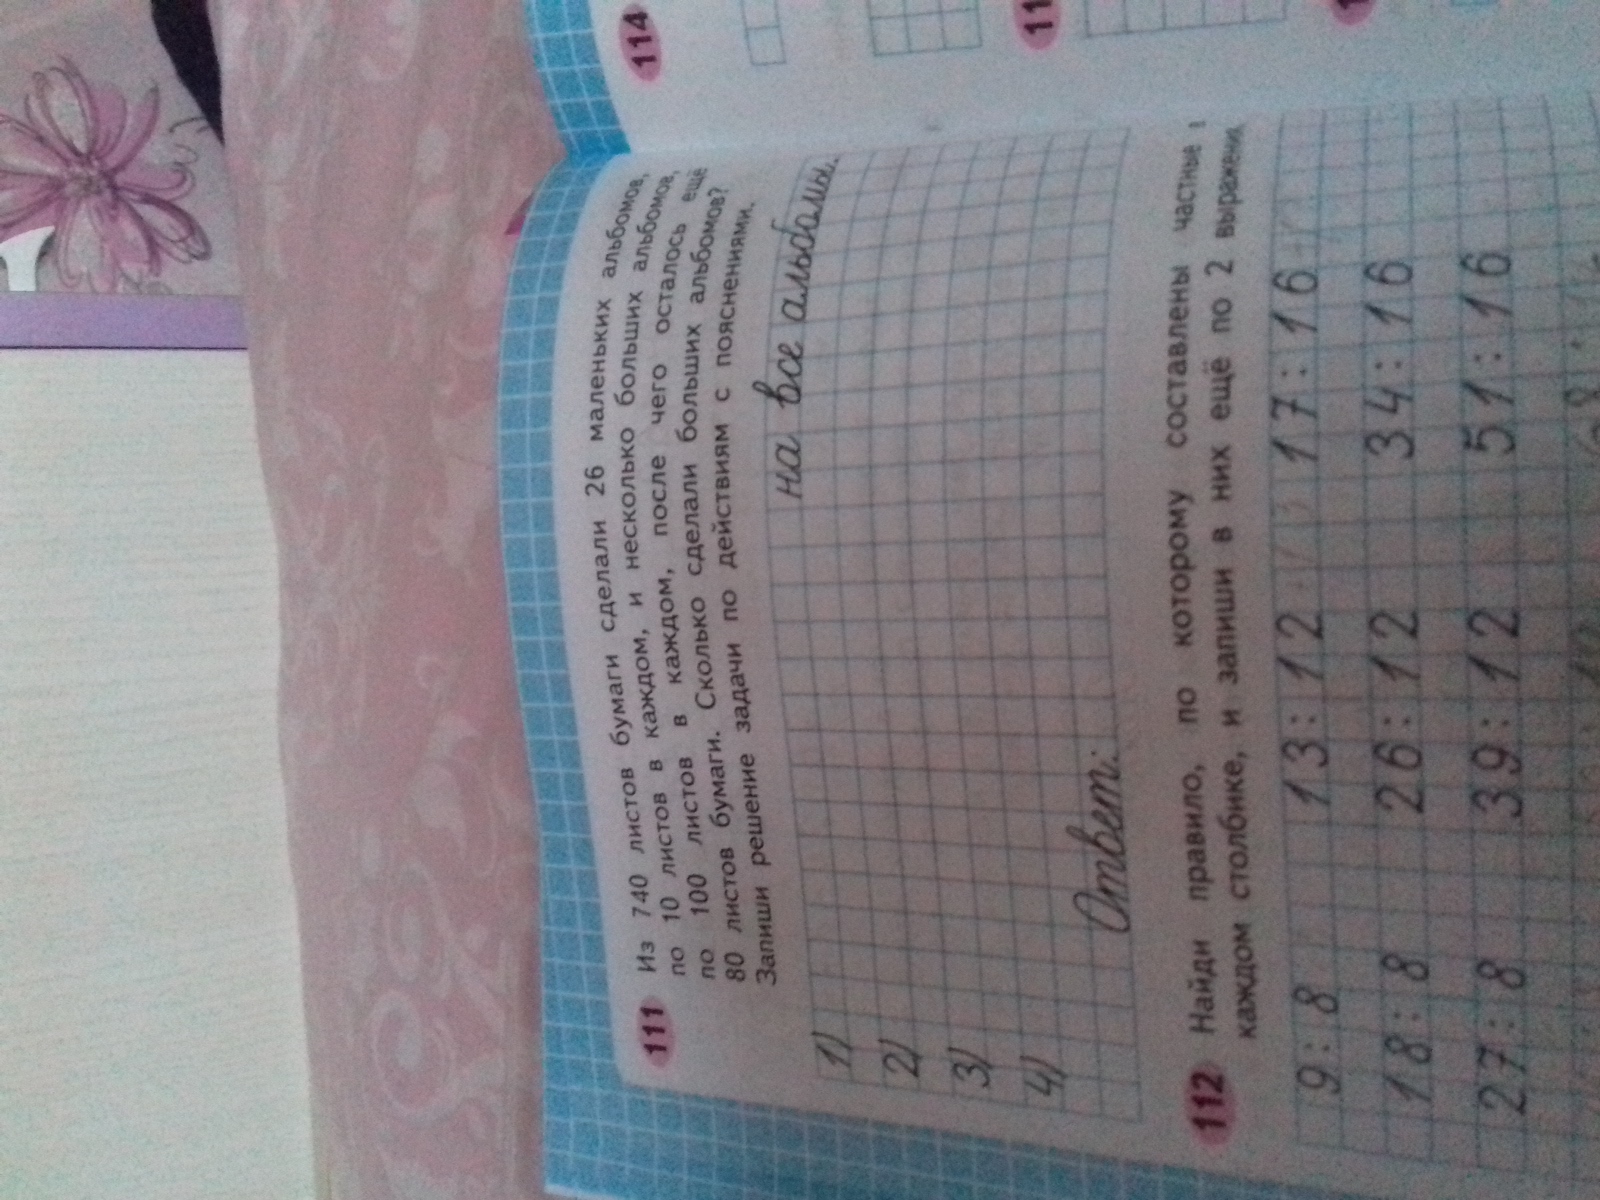 111 Из 740 листов бумаги сделали 26 маленьких альбомов,
по 10 листов в каждом, и несколько больших альбомов,
по 100 листов в каждом, после чего осталось ещё
80 листов бумаги. Сколько сделали больших альбомов?
Запиши решение задачи по действиям с пояснениями.
1) на все альбомы.
2)
3)
4)
Ответ:
112 Найди правило, по которому составлены частные
каждом столбике, и запиши в них ещё по 2
9:8 13:12 17:16
18:8 26:12 34:16
27:8 39:12 51:16
114